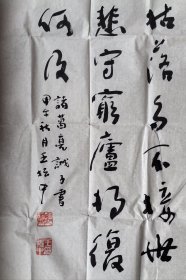 枯落多不接世
悲守窮廬將復
何及
諸葛亮誡子書
甲午秋月王培中